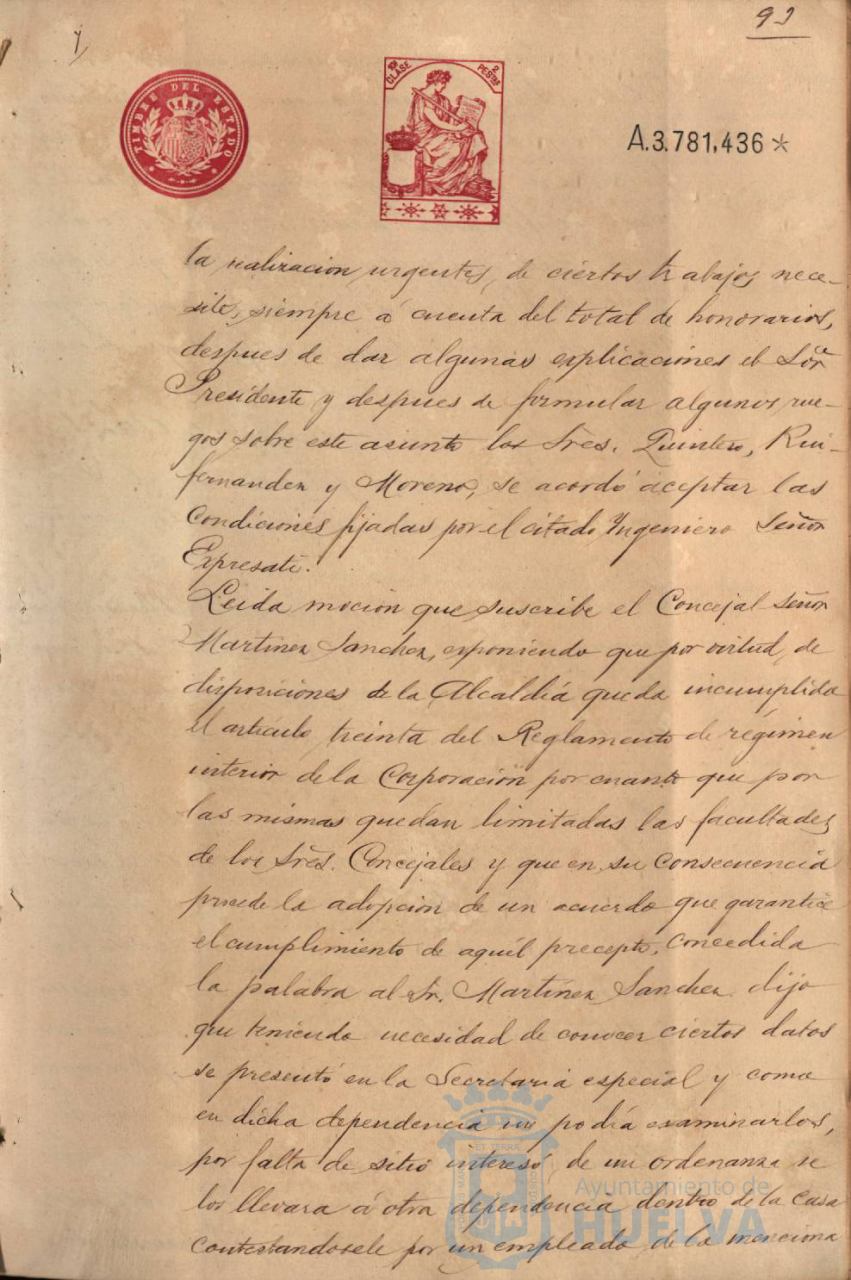 93
TIMBRE DEL ESTADO
10ª CLASE
2 PESTAS
A.3.781,436*
la realizacion urgentes, de ciertos trabajos nece-
site, siempre á cuenta del total de honorarios,
despues de dar algunas esplicaciones el Sõr
Presidente y despues de formular algunos rue-
gos sobre este asunto los Sres. Quintero, Rui-
fernandez y Moreno, se acordó aceptar las
condiciones fijadas por el citado Ingeniero Señor
Expresati.
Leida moción que suscribe el Concejal Señor
Martinez Sanchez, esponiendo que por virtud, de
disposiciones de la Alcaldía queda incumplida
el articulo treinta del Reglamento de régimen
interior de la Corporación por cuanto que por
las mismas quedan limitadas las facultades
de los Sres. Concejales y que en su consecuencia
procede la adopcion de un acuerdo que garantice
el cumplimiento de aquél precepto, concedida
la palabra al Sr. Martinez Sanchez dijo
que teniendo necesidad de conocer ciertos datos
se presentó en la Secretaria especial y como
en dicha dependencia no podía examinarlos,
por falta de sitio interesó, de un ordenanza se
los llevara á otra dependencia dentro de la casa
contestandosele por un empleado de la menciona
Ayuntamiento de
HUELVA